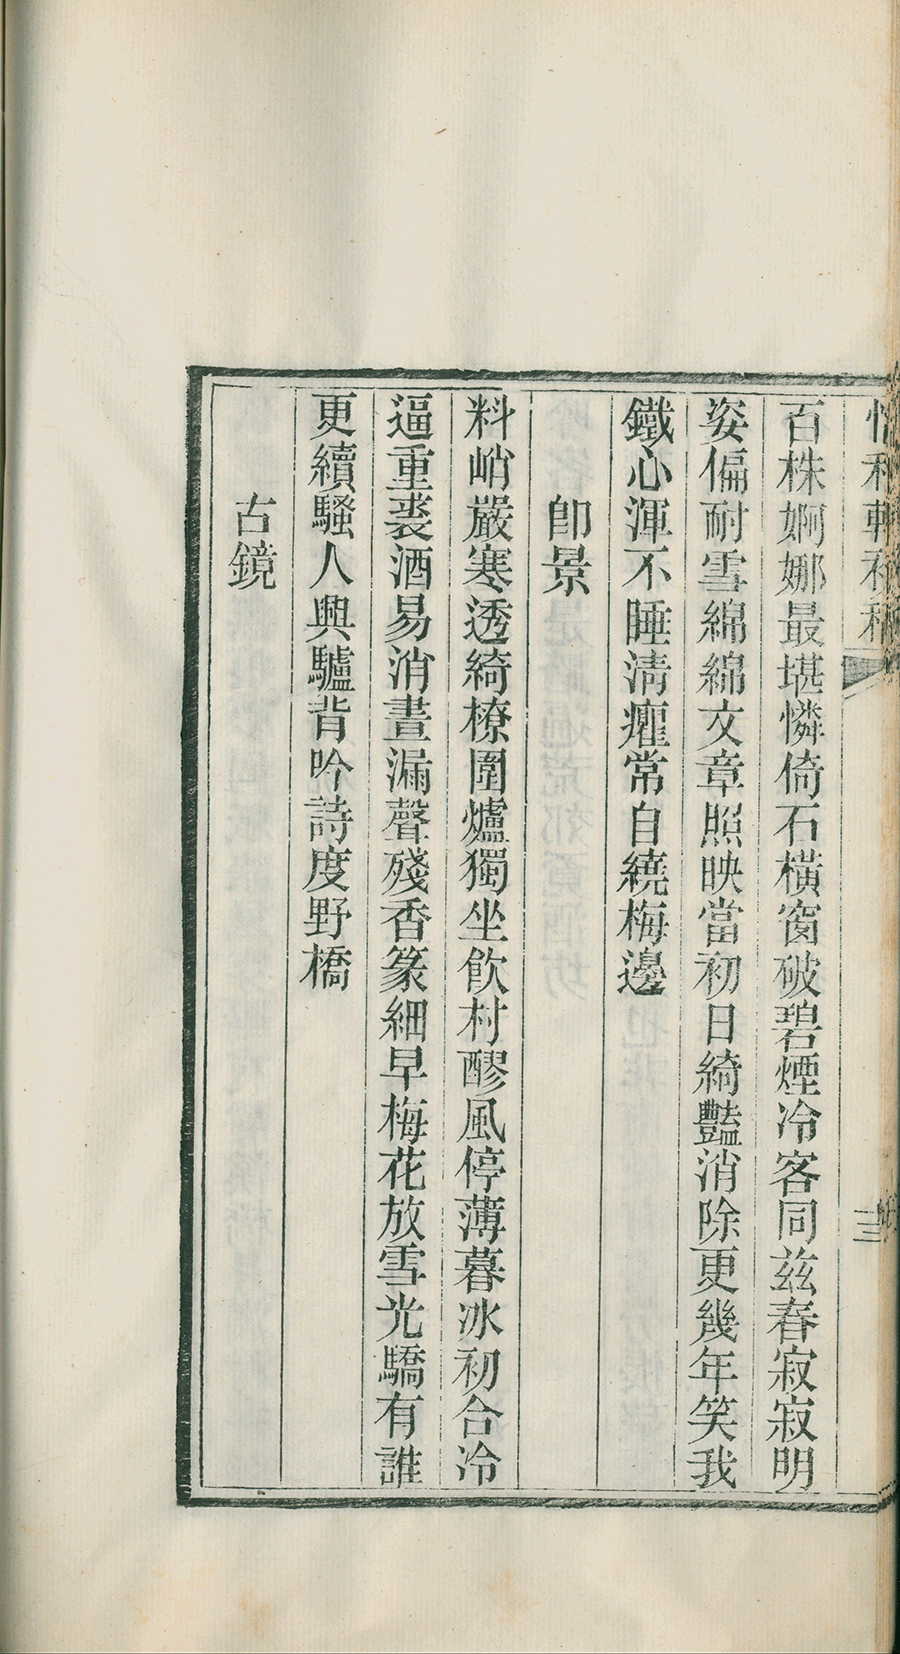 百株婀娜最堪憐倚石橫窗破碧煙冷客同兹春寂寂明
姿偏耐雪綿綿文章照映當初日綺豔消除更幾年笑我
鐵心渾不睡淸癯常自繞梅邊
卽景
料峭嚴寒透綺橑圍爐獨坐飮村醪風停薄暮冰初合冷
逼重裘酒易消晝漏聲殘香篆細早梅花放雪光驕有誰
更續騷人興驢背吟詩度野橋
古鏡